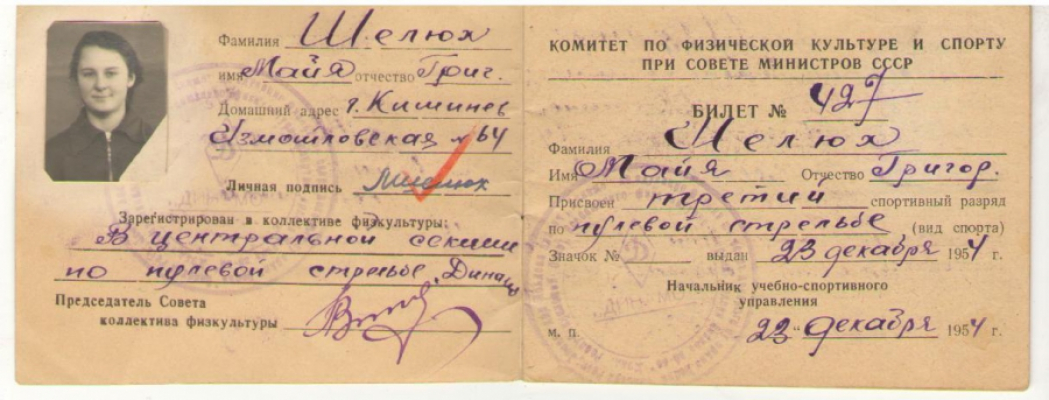 Фамилия Шелюх
имя Майя отчество Григ.
Домашний адрес г. Кишинев
Измаиловская № 64
Личная подпись
Зарегистрирован в коллективе физкультуры:
В центральной секции
по пулевой стрельбе, Динамо
Председатель Совета
коллектива физкультуры
КОМИТЕТ ПО ФИЗИЧЕСКОЙ КУЛЬТУРЕ И СПОРТУ
ПРИ СОВЕТЕ МИНИСТРОВ СССР
БИЛЕТ № 427
Фамилия Шелюх
Имя Майя Отчество Григор.
Присвоен третий спортивный разряд
по пулевой стрельбе (вид спорта)
Значок № выдан 23 декабря 1954 г.
Начальник учебно-спортивного
управления
м. п. 23 " декабря 1954 г.